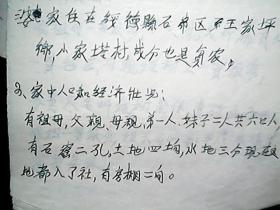 家住在绥德县石
乡,小家塔村,成分也是贫农,
2、家中人口和经济状况:
有祖母,父亲、母亲、弟一人、妹子二人共六口人
有石窑二孔,土地四垧,水地三分现
地都入了社,有房棚二间。